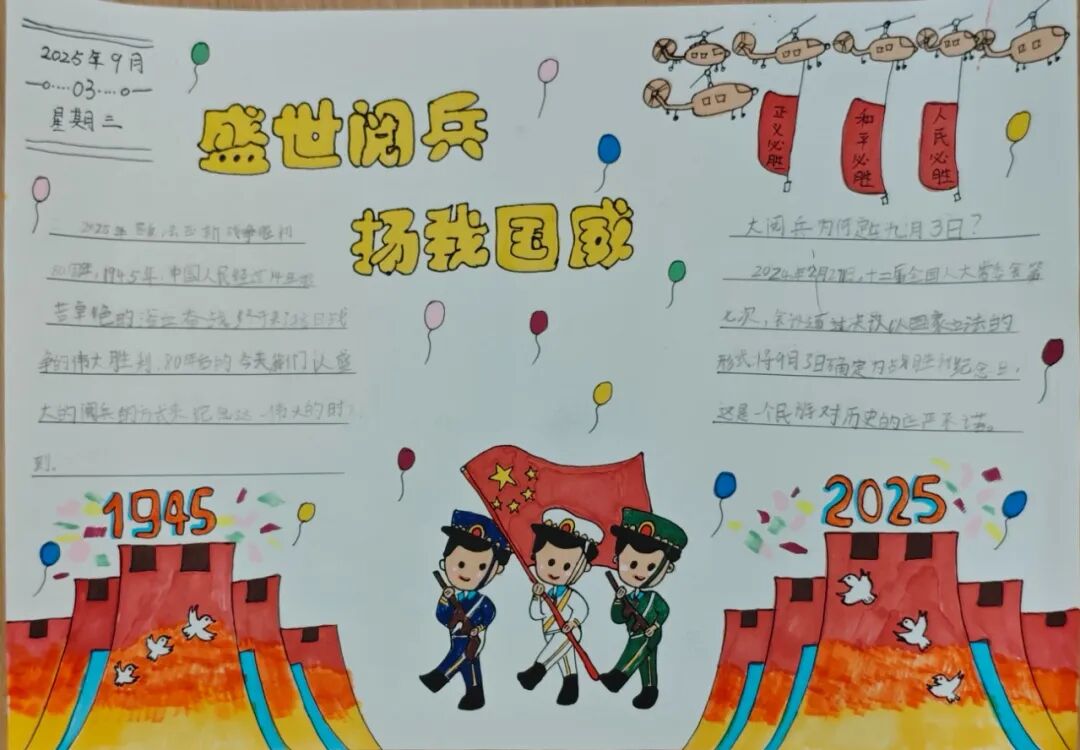 2025年9月
03
星期三
盛世阅兵
扬我国威
正义必胜
和平必胜
人民必胜
2025年 法西斯战争胜利
80周年,1945年,中国人民经过14年
苦卓绝的浴血奋战 日战
争的伟大胜利,80年后的今天我们以盛
大的阅兵的方式来纪念这一伟大的时
刻。
大阅兵为何定在九月3日?
2024年2月27日,十二届全国人大常委会第
七次,会议通过决议以国家立法的
形式将9月3日确定为战胜利纪念日,
这是一个民族对历史的庄严承诺。
1945
2025